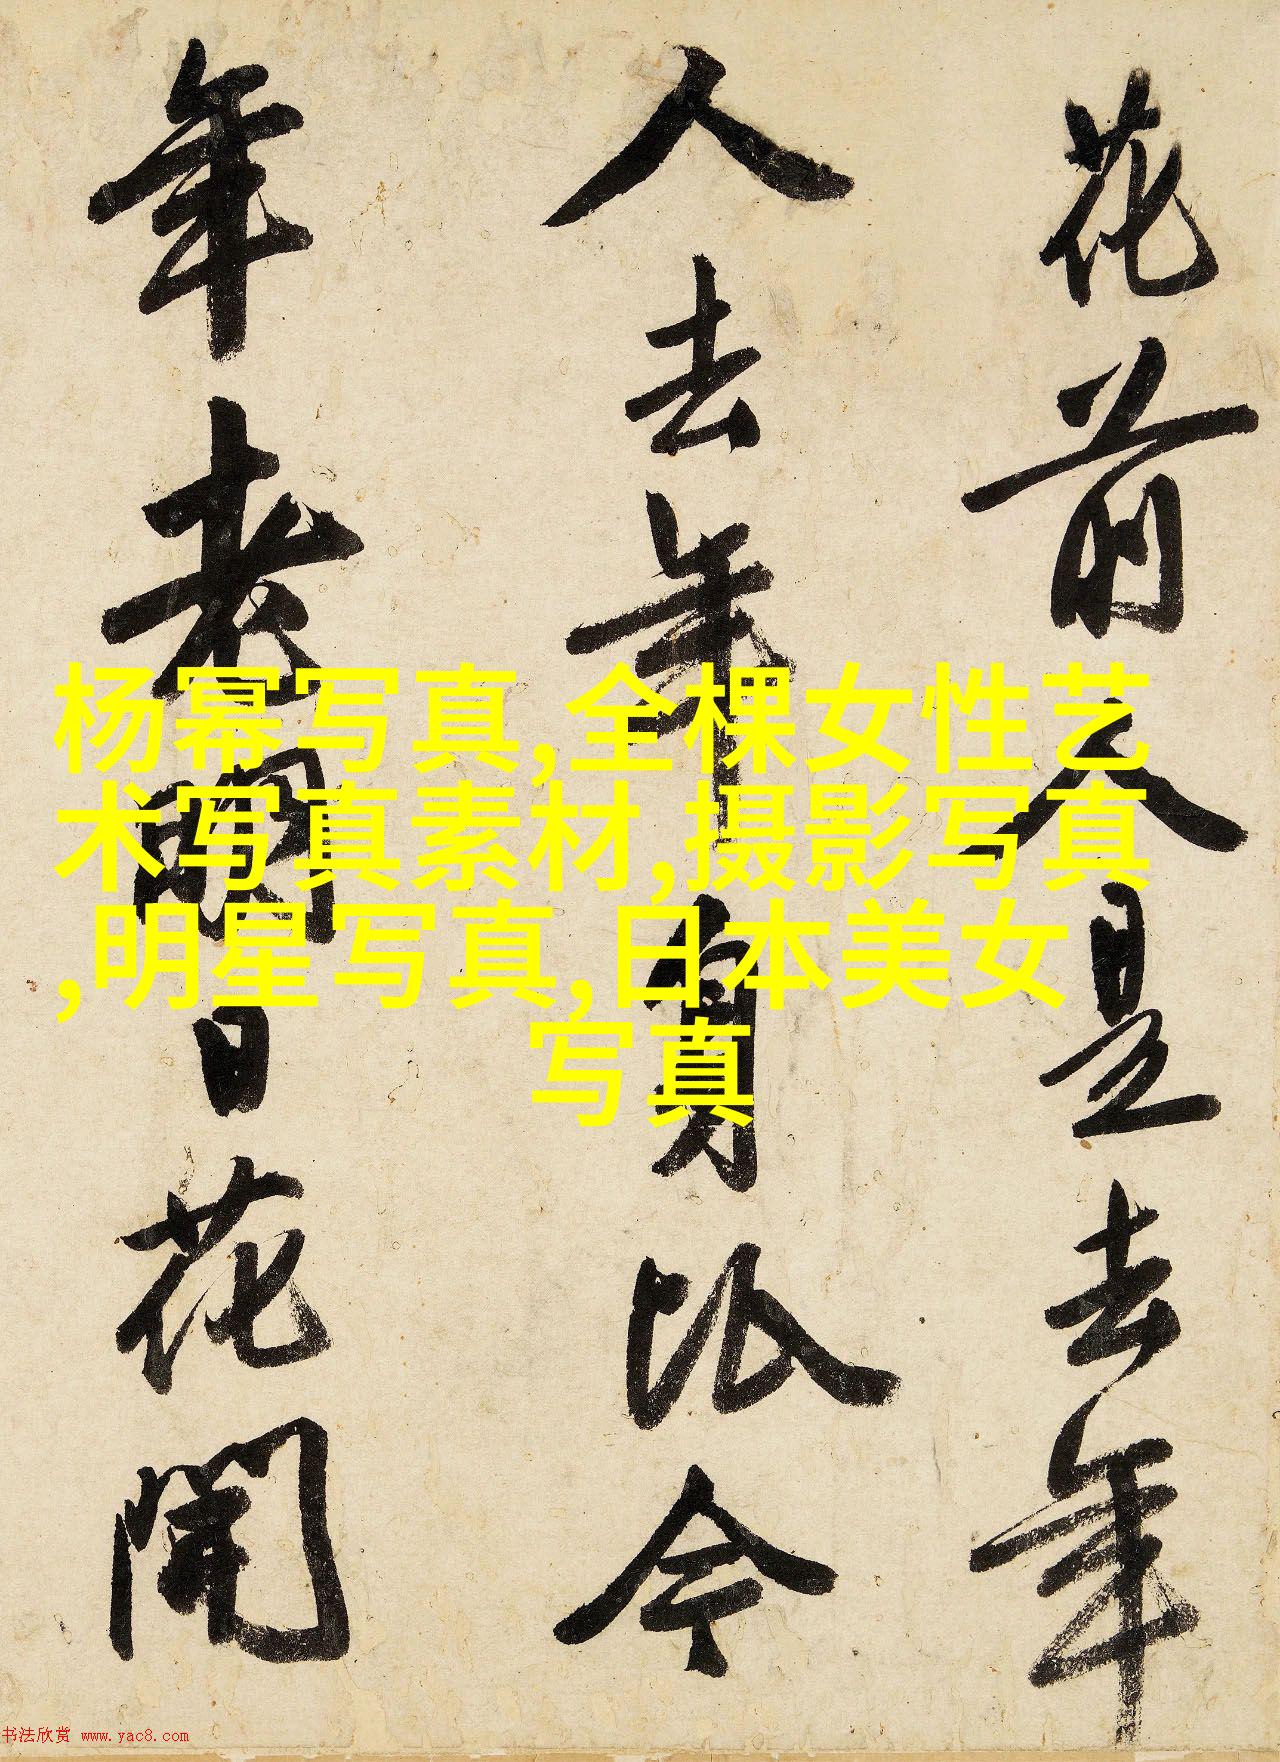 花前人是去年
人去年身比今
年老明日花開
杨幂写真,全棵女性艺
术写真素材,摄影写真
,明星写真,日本美女
写真
书法欣赏 www.yac8.com